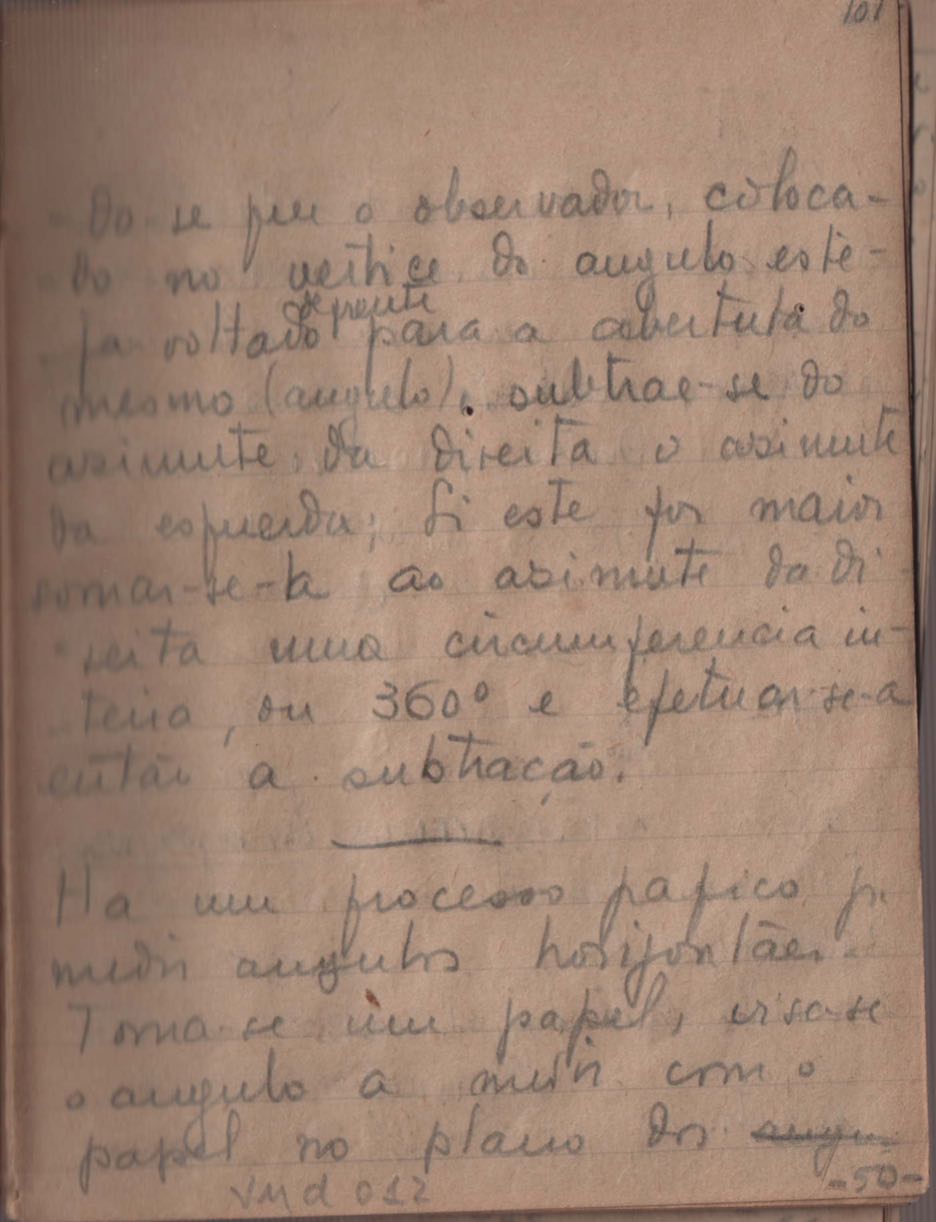 101
do-se que o observador, coloca-
do no vertice do angulo este-
ja voltado de frente para a abertura do
mesmo (angulo), subtrae-se do
azimute da direita o azimute
da esquerda; Si este for maior
somar-se-á ao azimute da di-
reita uma circumferencia in-
teira, ou 360° e efetuar-se-a
então a subtração.
Ha um processo grafico p.
medir angulos horizontães.
Toma-se um papel, visa-se
o angulo a medir com o
papel no plano dos angu-
-50-
VMd 012